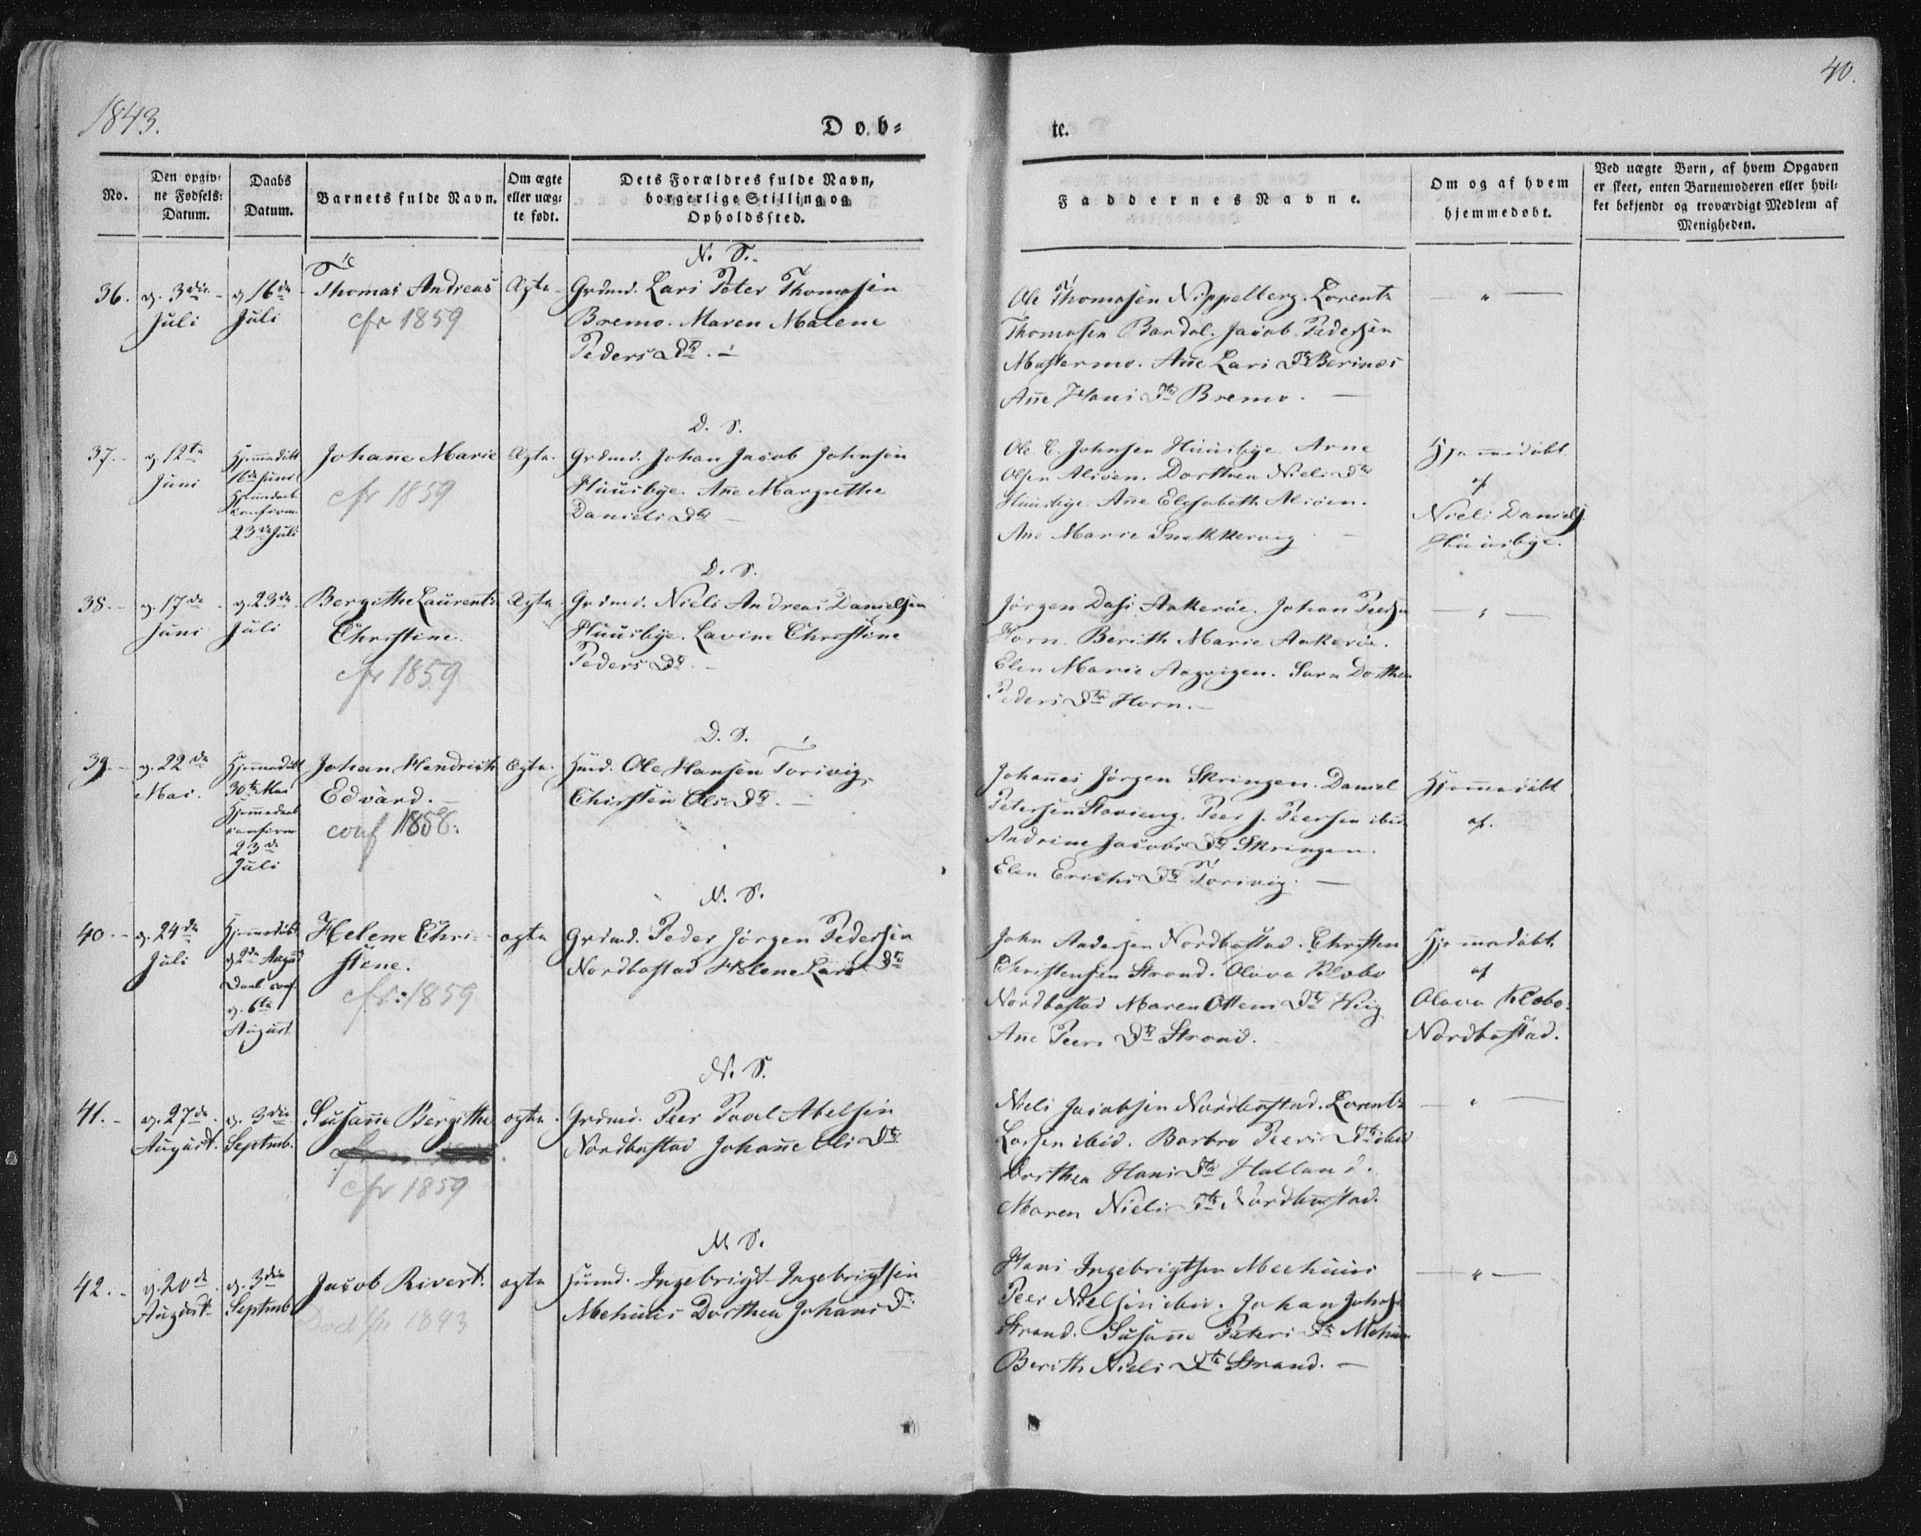 1843.
40.
Døb-
te.
No.
Den opgiv-
ne Fødsels-
Datum.
Daabs
Datum.
Barnets fulde Navn.
Om ægte
eller uæg-
te født.
Dets Forældres fulde Navn,
borgerlige Stilling og
Opholdssted.
Faddernes Navne.
Om og af hvem
hjemmedøbt.
Ved uægte Børn, af hvem Opgaven
er skeet, enten Barnemoderen eller hvil-
ket bekjendt og troværdigt Medlem af
Menigheden.
N. S.
36.
d. 3die
Juli
d. 16de
Juli
Thomas Andreas
cfr 1859
Ægte
Grdmd. Lars Peter Thomasen
Bremo. Maren Malene
Peders Dtr.
Ole Thomasen Nippelberg. Lorents
Thomasen Bardal. Jacob Pedersen
Mastermo. Ane Lars Dtr Berines
Ane Hans Dtr Bremo.
D. S.
37.
d. 12te
Juni
Hjemmedøbt
16de Juni
Hjemmedaab
Konfirm
23de Juli
Johanne Marie
cfr 1859
Ægte.
Grdmd. Johan Jacob Johnsen
Huusbye. Ane Margrethe
Daniels Dtr
Ole C. Johnsen Huusbye Arne
Olsen Alsøen. Dorthea Niels Dtr
Huusbye. Ane Elisabeth Alsøen.
Ane Marie Snekkervig
Hjemmedøbt
af
Niels Daniels
Huusbye.
D. S.
38.
d. 17de
Juni
d. 23de
Juli
Bergithe Laurents
Christine.
cfr 1859
Ægte
Grdmd. Niels Andreas Danielsen
Huusbye. Lavine Christine
Peders Dtr.
Jørgen Dass Aakerøe. Johan Peders
Horn. Berith Marie Aakerøe.
Elen Marie Aagvigen. Sara Dorthea
Peders Dtr Horn.
D. S.
39.
d. 22de
Mai.
Hjemmedøbt
30te Mai
Hjemmedaab
confirm
23de
Juli
Johan Hendrich
Edvard.
conf 1858.
Ægte.
Huusmd. Ole Hansen Torsvig.
Chirsten Ols Dtr.
Johannes Jørgen Skringen. Daniel
Petersen Peer J. Peersen ibid.
Andrine Jacobs Dtr Skringen.
Elen Erichs Dtr Torsvig.
Hjemmedøbt
af.
N. S.
40.
d. 24de
Juli
Hjemmedøbt
d. 2de Aug
Daab conf.
d. 6te
August
Helene Chri-
stene.
cfr: 1859
ægte
Grdmd. Peder Jørgen Pedersen
Nordbostad Helene Lars Dtr
John Andersen Nordbostad. Christen
Christensen Strand. Olava Klobo
Nordbostad Maren Ottens Dtr Wiig
Ane Peers Dtr Strand.
Hjemmedøbt
af
Olava Klobo
Nordbostad.
N. S.
41.
d. 27de
August.
d. 3die
Septmb.
Susanne Bergithe
cfr 1859
ægte
Grdmd. Peer Povel Abelsen
Nordbostad Johanne Ols Dtr
Niels Jacobsen Nordbostad. Lorents
Larsen ibid. Barbro Peers Dtr ibid
Dorthea Hans Dtr Halland.
Maren Niels Dtr Nordbostad.
M. S.
42.
d. 20de
August.
d. 3die
Septmb
Jacob Rivert.
Død fr 1843
ægte
Huusmd. Ingebrigt Ingebrigtsen
Mehuus Dorthea Johans Dtr
Hans Ingebrigtsen Meehuus
Peer Nielsen ibid. Johan Johns
Strand. Susanne Peters Dtr Mehuus
Berith Niels Dtr Strand.